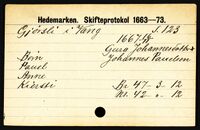 Hedemarken. Skifteprotokol 1663—73.
Gjörsli i Vang S. 123
1667
Guru Johannesdatter
Børn Johannes Paulsen
Paul
Anne
Kiersti Nr. 47 - 3 - 12
Nr. 42 - 0 - 12